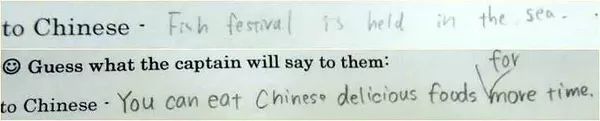 to Chinese - Fish festival is held in the sea.
☺ Guess what the captain will say to them:
for
to Chinese - You can eat Chinese delicious foods more time.